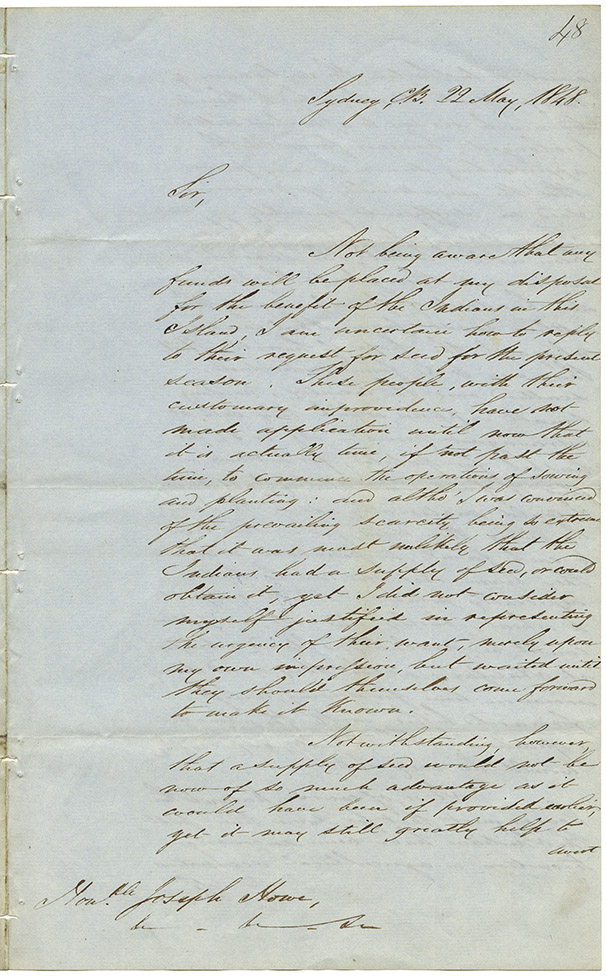 48
Sydney, C.B. 22 May, 1848.
Sir,
Not being aware that any
funds will be placed at my disposal
for the benefit of the Indians in this
Island, I am uncertain how to reply
to their request for seed for the present
season. These people, with their
customary improvidence, have not
made application until now that
it is actually time, if not past the
time, to commence the operations of sowing
and planting: and altho' I was convinced
of the prevailing scarcity being so extreme
that it was most unlikely that the
Indians had a supply of seed, or could
obtain it, yet I did not consider
myself justified in representing
the urgency of their want, merely upon
my own impression, but waited until
they should themselves come forward
to make it known.
Notwithstanding, however,
that a supply of seed would not be
now of so much advantage as it
would have been if provided earlier,
yet it may still greatly help to
avert
Honble Joseph Howe,
&c - &c - &c